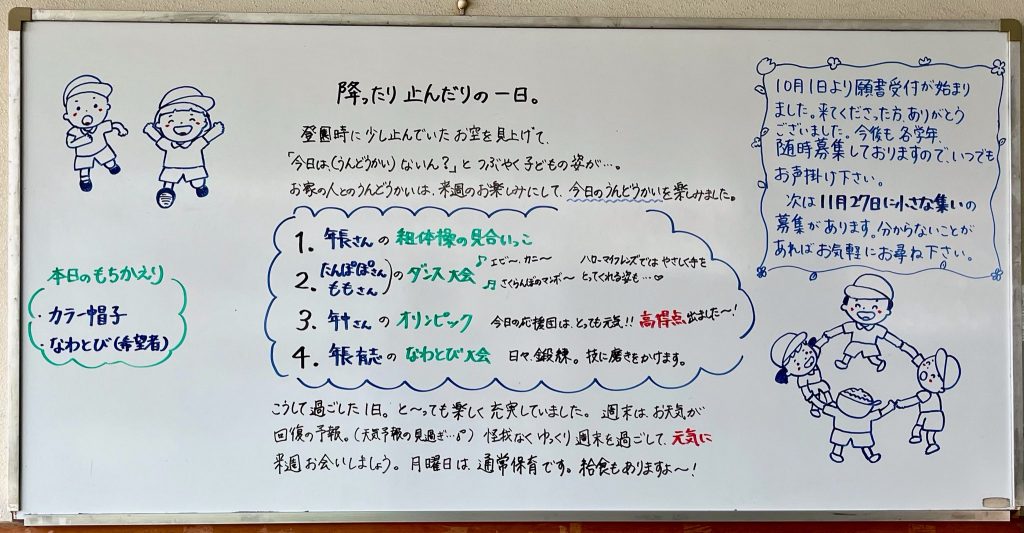 降ったり止んだりの一日。
登園時に少し止んでいたお空を見上げて、
「今日は、(うんどうかい)ないん?」とつぶやく子どもの姿が…。
お家の人とのうんどうかいは、来週のお楽しみにして、今日のうんどうかいを楽しみました。
1. 年長さんの組体操の見合いっこ
2. たんぽぽさん
ももさん}のダンス大会
♪エビ〜、カニ〜 ハローマイフレンズではやさしく手を
♬さくらんぼのマンボ〜 とってくれる姿も…♡
3. 年中さんのオリンピック 今日の応援団は、とっても元気!!高得点出ました〜!
4. 年長有志のなわとび大会 日々、鍛練。技に磨きをかけます。
こうして過ごした1日。と〜っても楽しく充実していました。週末は、お天気が
回復の予報。(天気予報の見過ぎ…) 怪我なくゆっくり週末を過ごして、元気に
来週お会いしましょう。月曜日は、通常保育です。給食もありますよ〜!
本日のもちかえり
・カラー帽子
・なわとび(希望者)
10月1日より願書受付が始まり
ました。来てくださった方、ありがとう
ございました。今後も各学年、
随時募集しておりますので、いつでも
お声掛け下さい。
次は11月27日に小さな集いの
募集があります。分からないことが
あればお気軽にお尋ね下さい。